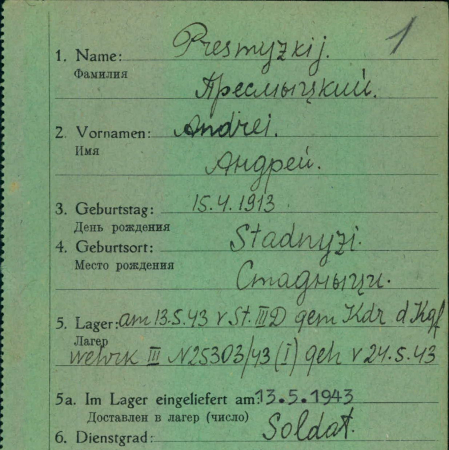 1
1. Name: Presmyzkij.
Фамилия
Пресмыцкий.
2. Vornamen: Andrei.
Имя
Андрей.
3. Geburtstag: 15.4.1913
День рождения
4. Geburtsort: Stadnyzi.
Место рождения
Стадныци.
5. Lager: am 13.5.43 v St. III D gem Kdr d Kgf
Лагер
wehrk III N25303/43 (I) geh v 24.5.43
5a. Im Lager eingeliefert am: 13.5.1943
Доставлен в лагер (число)
6. Dienstgrad: Soldat.